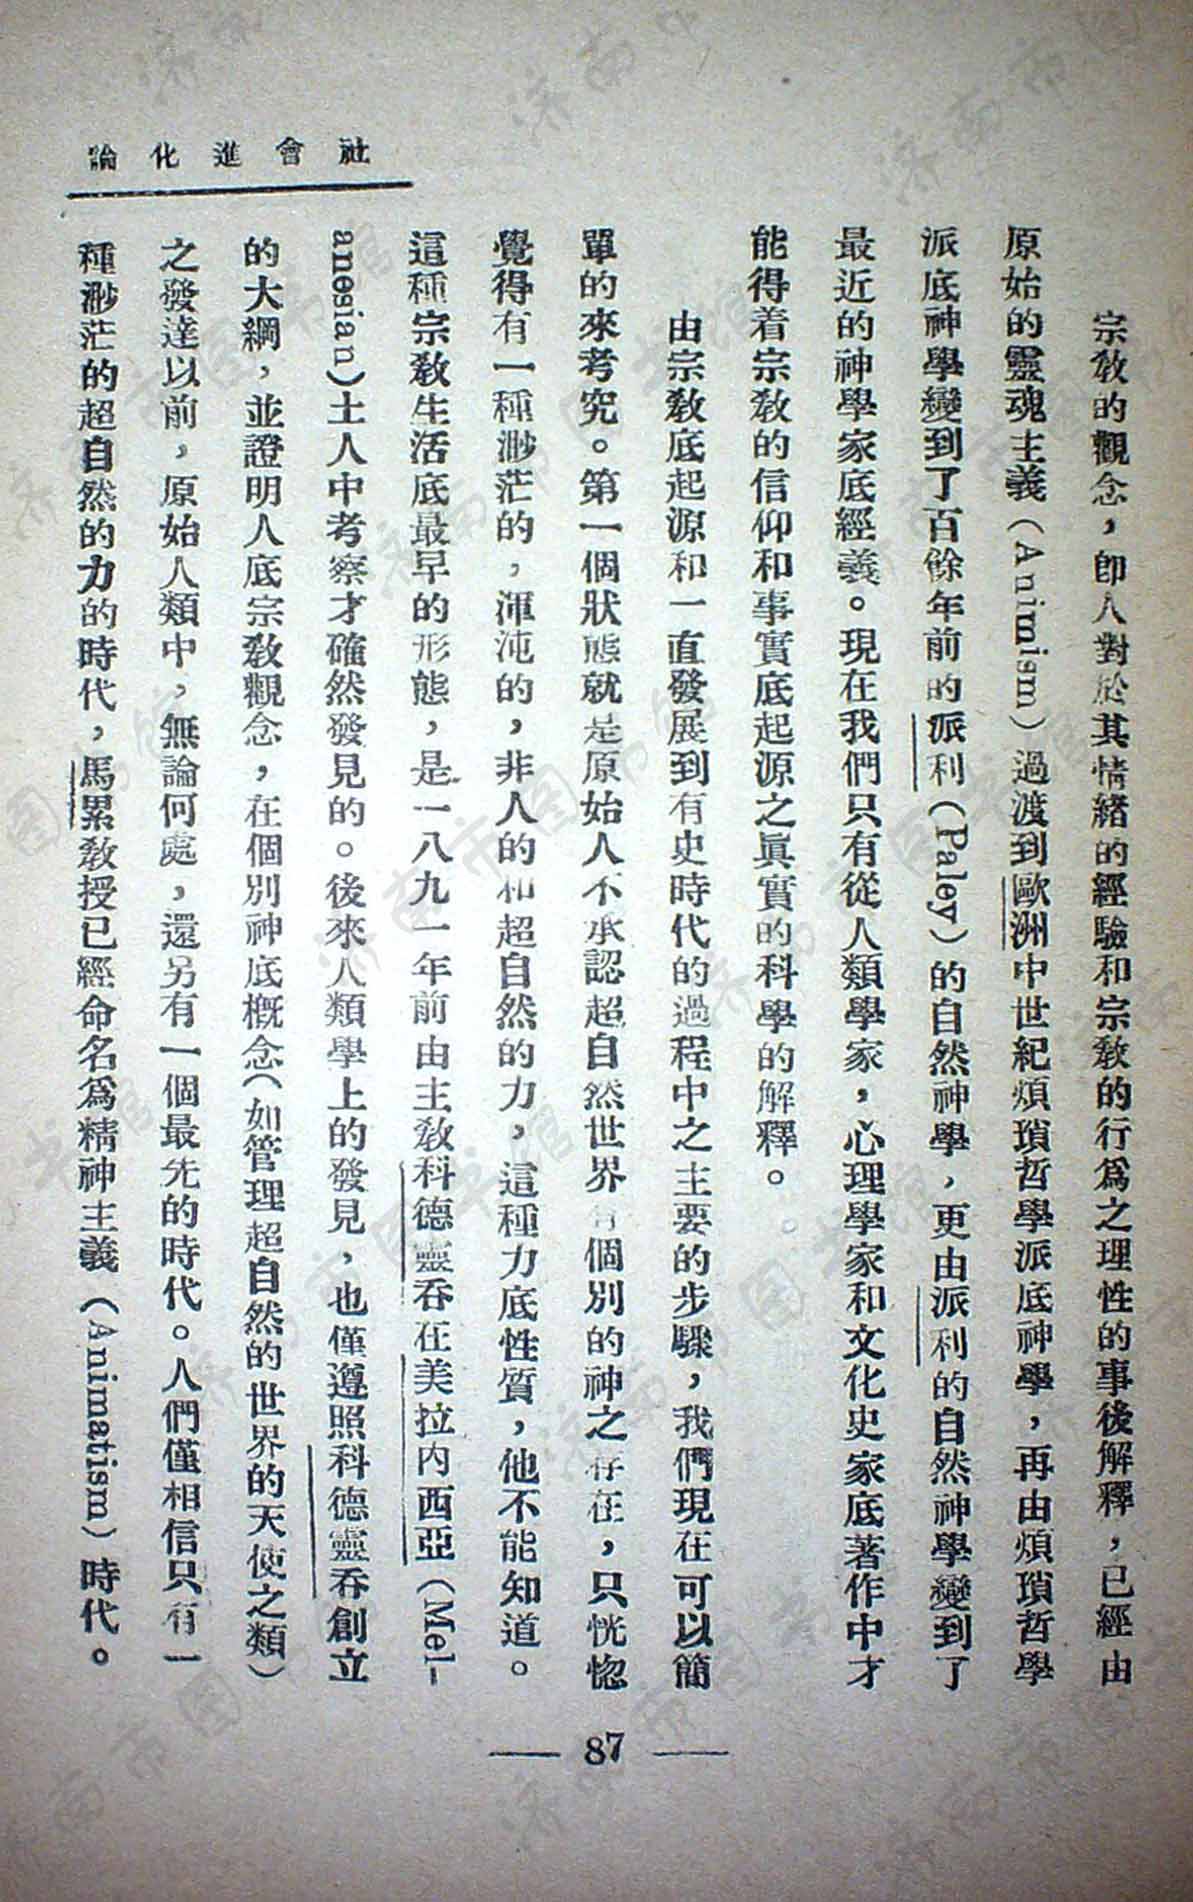 社會進化論
宗教的觀念，卽人對於其情緒的經驗和宗教的行爲之理性的事後解釋，已經由
原始的靈魂主義（Animism）過渡到歐洲中世紀煩瑣哲學派底神學，再由煩瑣哲學
派底神學變到了百餘年前的派利（Paley）的自然神學，更由派利的自然神學變到了
最近的神學家底經義。現在我們只有從人類學家，心理學家和文化史家底著作中才
能得着宗教的信仰和事實底起源之眞實的科學的解釋。
由宗教底起源和一直發展到有史時代的過程中之主要的步驟，我們現在可以簡
單的來考究。第一個狀態就是原始人不承認超自然世界有個別的神之存在，只恍惚
覺得有一種渺茫的，渾沌的，非人的和超自然的力，這種力底性質，他不能知道。
這種宗教生活底最早的形態，是一八九一年前由主教科德靈吞在美拉內西亞（Mel-
anesian）土人中考察才確然發見的。後來人類學上的發見，也僅遵照科德靈吞創立
的大綱，並證明人底宗教觀念，在個別神底槪念（如管理超自然的世界的天使之類）
之發達以前，原始人類中，無論何處，還另有一個最先的時代。人們僅相信只有一
種渺茫的超自然的力的時代，馬累教授已經命名爲精神主義（Animatism）時代。
— 87 —
济南市图书馆